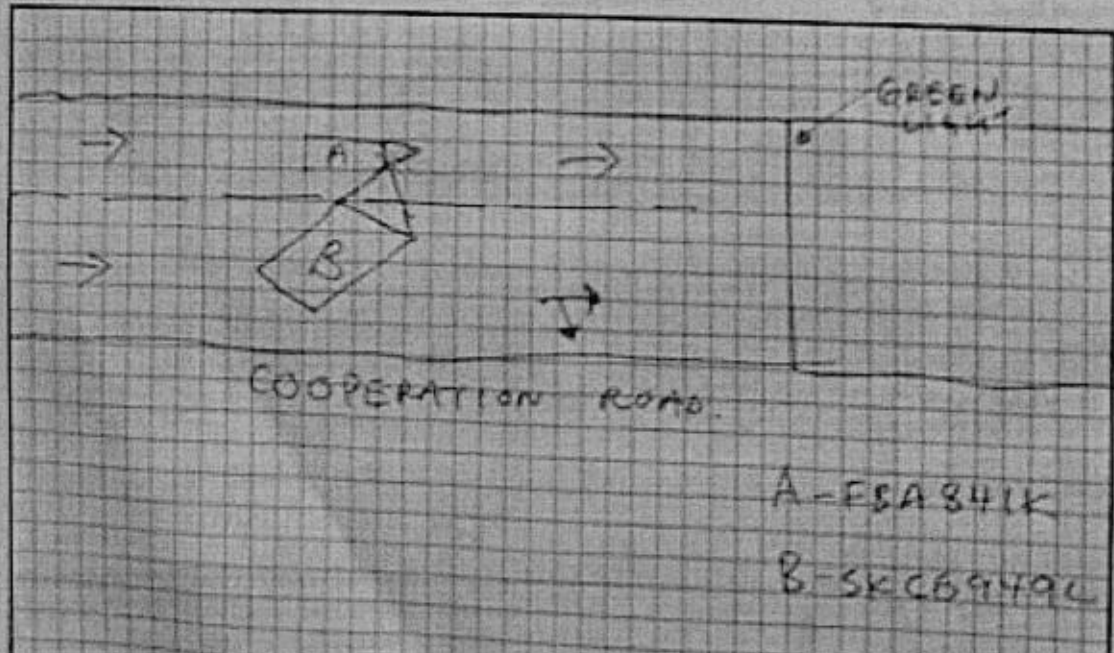 GREEN
LIGHT
A
B
COOPERATION ROAD.
A-FBA841K
B-SKC6949L